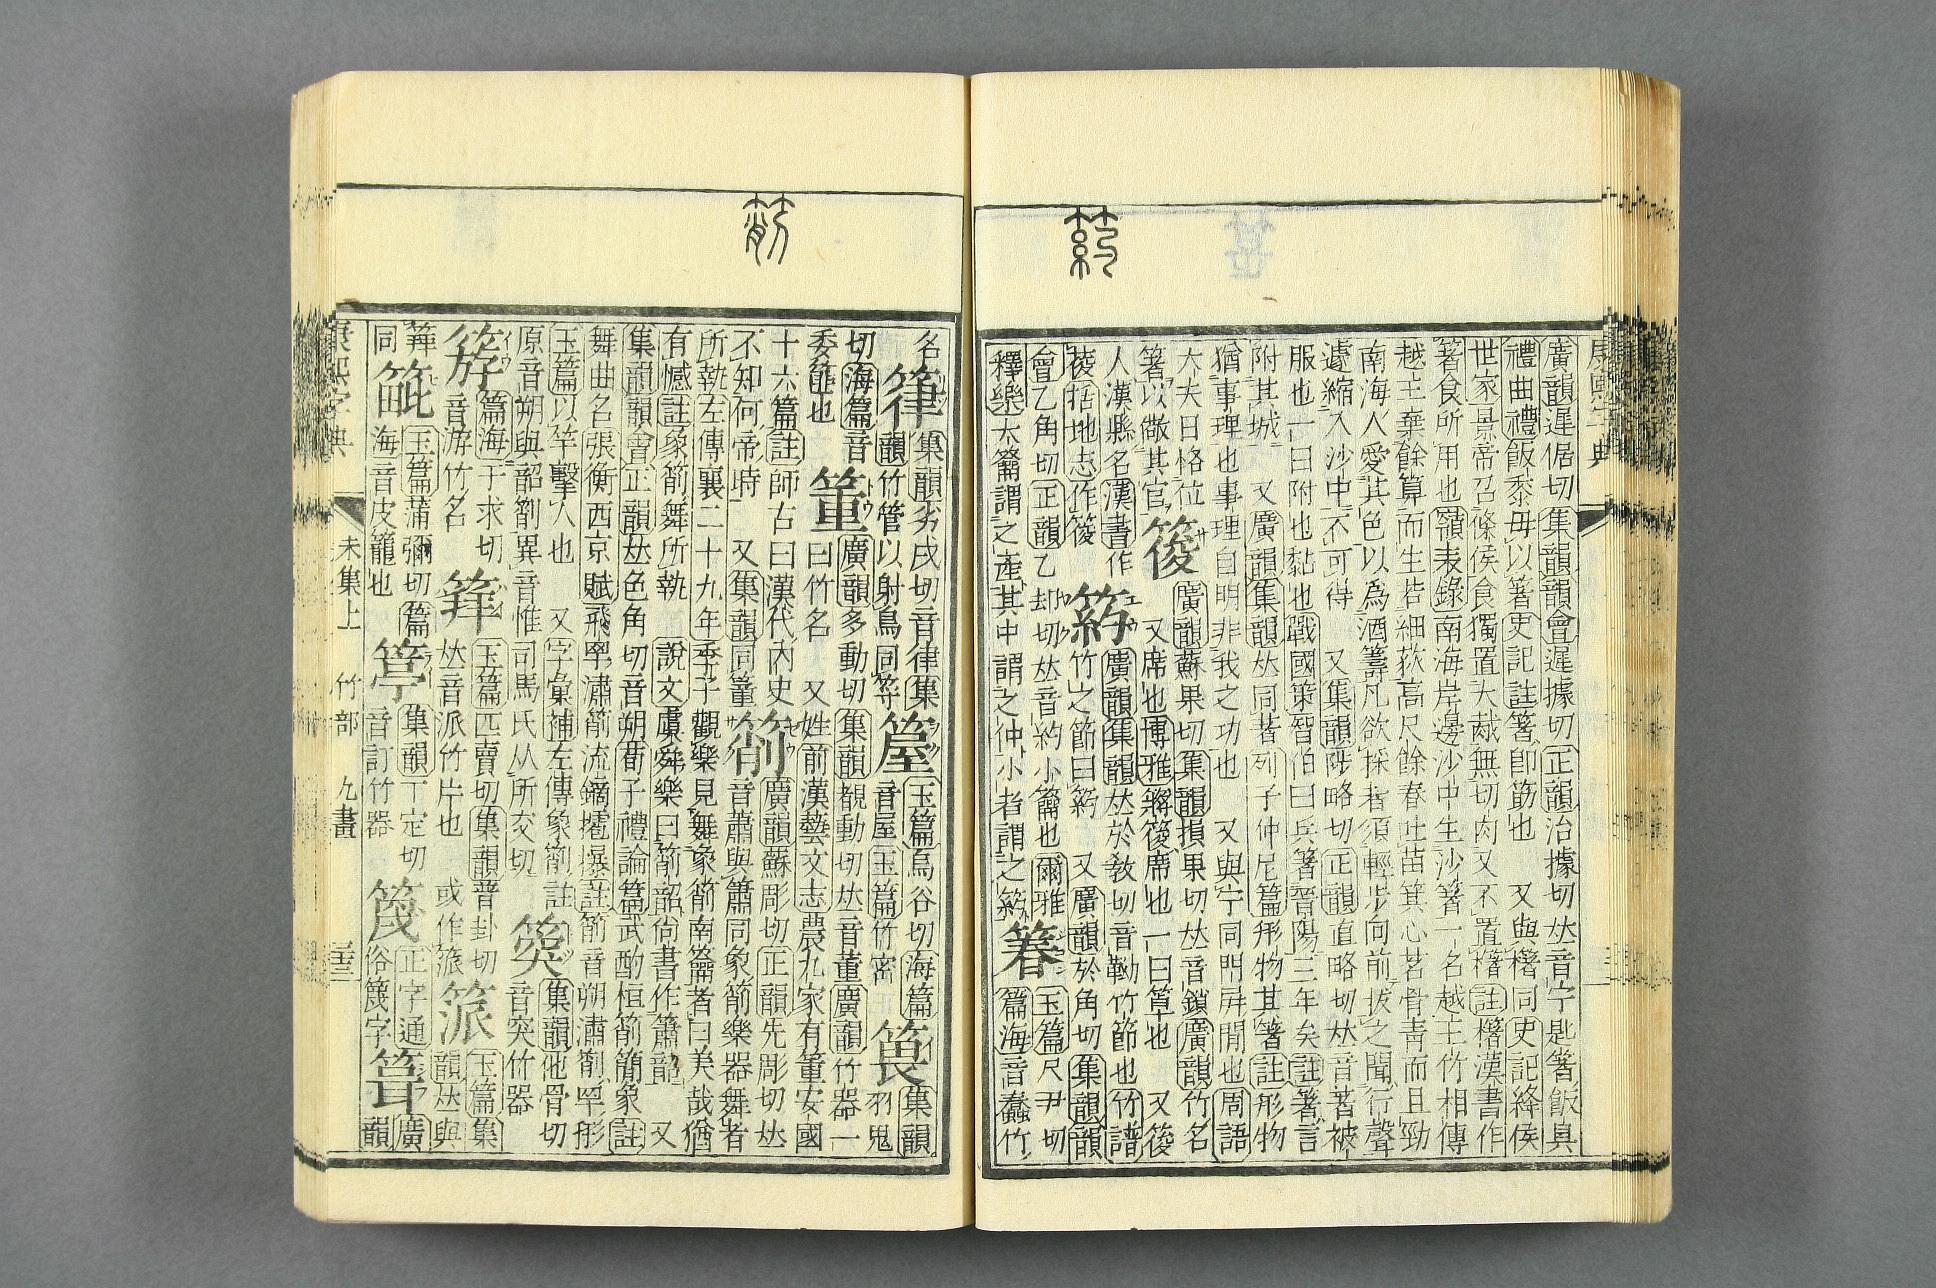 箹
廣韻遲倨切集韻韻會遲據切正韻治據切𠀤音宁匙箸飯具
禮曲禮飯黍毋以箸史記註箸卽筯也 又與櫡同史記絳侯
世家景帝召條侯食獨置大胾無切肉又不置櫡註櫡漢書作
箸食所用也嶺表錄南海岸邊沙中生沙箸一名越王竹相傳
越王棄餘算而生若細荻高尺餘春吐苗箕心若骨靑而且勁
南海人愛其色以爲酒籌凡欲採者須輕步向前拔之聞行聲
遽縮入沙中不可得 又集韻陟略切正韻直略切𠀤音著被
服也一曰附也黏也戰國策智伯曰兵箸晉陽三年矣註箸言
附其城 又廣韻集韻𠀤同著列子仲尼篇形物其箸註形物
猶事理也事理自明非我之功也 又與宁同門屛閒也周語
大夫日恪位
箸以儆其官
䈗
廣韻蘇果切集韻損果切𠀤音鎖廣韻竹名
又席也博雅䉬䈗席也一曰箄也 又䈗
人漢縣名漢書作
䓈括地志作䈗
箹
廣韻集韻𠀤於敎切音靿竹節也竹譜
竹之節曰箹 又廣韻於角切集韻韻
會乙角切正韻乙却切𠀤音約小籥也爾雅
釋樂大籥謂之產其中謂之仲小者謂之箹
䈏
玉篇尺尹切
篇海音蠢竹
名
箻
集韻劣戌切音律集
韻竹管以射鳥同䇥
䈅
玉篇烏谷切海篇
音屋玉篇竹密
䈧
集韻
羽鬼
切海篇音
委䉨也
箽
廣韻多動切集韻覩動切𠀤音董廣韻竹器一
曰竹名 又姓前漢藝文志農九家有董安國
十六篇註師古曰漢代內史
不知何帝時 又集韻同籦
箾
廣韻蘇彫切正韻先彫切𠀤
音蕭與簫同象箾樂器舞者
所執左傳襄二十九年季子觀樂見舞象箾南籥者曰美哉猶
有憾註象箾舞所執 說文虞舜樂曰箾韶尚書作簫韶 又
集韻韻會正韻𠀤色角切音朔荀子禮論篇武酌桓箾簡象註
舞曲名張衡西京賦飛罕潚箾流鏑𢷏㩧註箾音朔潚箾罕形
玉篇以竿擊人也 又字彙補左傳象箾註
原音朔與韶箾異音惟司馬氏从所交切
䇸
集韻他骨切
音突竹器
䉊
篇海于求切
音游竹名
䈙
玉篇匹賣切集韻普卦切
𠀤音派竹片也 或作𥱼
𥱼
玉篇集
韻𠀤與
䈙
同
䈚
玉篇蒲彌切篇
海音皮籠也
葶
集韻丁定切
音訂竹器
䈟
正字通
俗篾字
䇯
廣
韻
康熙字典 未集上 竹部 九畫 三十三